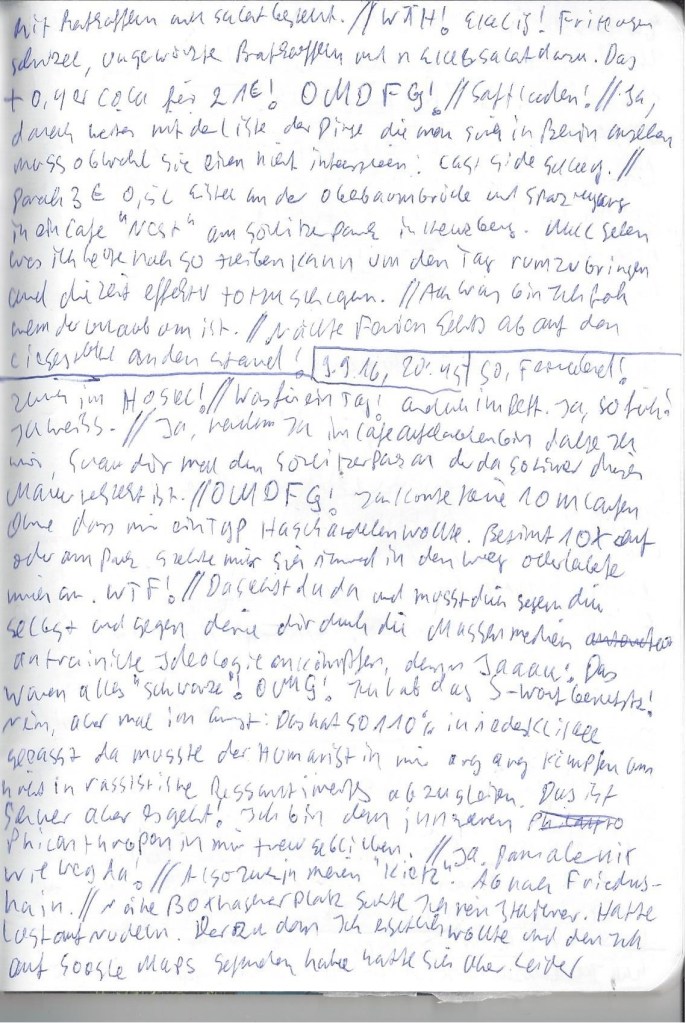 mit Bratkartoffeln und salat bestellt. // WTH! Eklig! Friteusen
schnizel, ungewürzte Bratkartoffeln und n Krautsalat dazu. Das
+ 0,4er Cola für 21€! OMDFG! // Saftladen! // Ja,
danach weiter mit der liste der Dinge die man sich in Berlin ansehen
muss obwohl sie einen nicht interessieren: East Side Gallery. //
Danach 3 € 0,5L an der Oberbaumbrücke und Spaziergang
in ein Cafe "Nest" am Görlitzer Park in Kreuzberg. Mal sehen
was ich heute noch so treiben kann um den Tag rumzubringen
und die zeit effektiv totzuschlagen. // Ach was bin Ich froh
wenn der urlaub um ist. // Nächte Ferien gehts ab auf den
Liegestuhl an den strand!
9.9.16, 20:45 So, Feierabend!
zurück im Hostel! // Was für ein Tag! und ich im Bett. Ja, so früh!
Ja weiss. // Ja, nachdem Ich im Cafe bin dachte Ich
mir, schau dir mal den Görlitzerpark an der da so hinter dieser
Mauer ist. // OMDFG! Ich konnte keine 10m laufen
Ohne dass mir ein Typ Hasch andrehen wollte. Bestimmt 10x auf
oder am Park stellte mir sich jemand in den Weg oder laberte
mich an. WTF! // Da gehst du da und musst dich gegen dich
selbst und gegen deine dir durch die Massenmedien
antrainierte Ideologie ankämpfen, denn Jaaaa! Das
waren alles "Schwarze"! OMG! Ich hab das S-Wort benutzt!
nein, aber mal im ernst: Das hat so 110% in jedes Klischee
gepasst da musste der Humanist in mir arg arg kämpfen um
nicht in rassistische Ressentiments abzugleiten. Das ist
schwer aber es geht! Ich bin dem inneren
Philanthropen in mir treu geblieben. // Ja, danach
weg da! // Also zurück in meinen "Kietz". Ab nach Friedrichs-
hain. // Nähe Boxhagnerplatz suchte Ich nen Italiener. Hatte
Lust auf nudeln. Der zu dem Ich eigentlich wollte und den Ich
auf Google Maps gefunden habe hatte sich aber leider